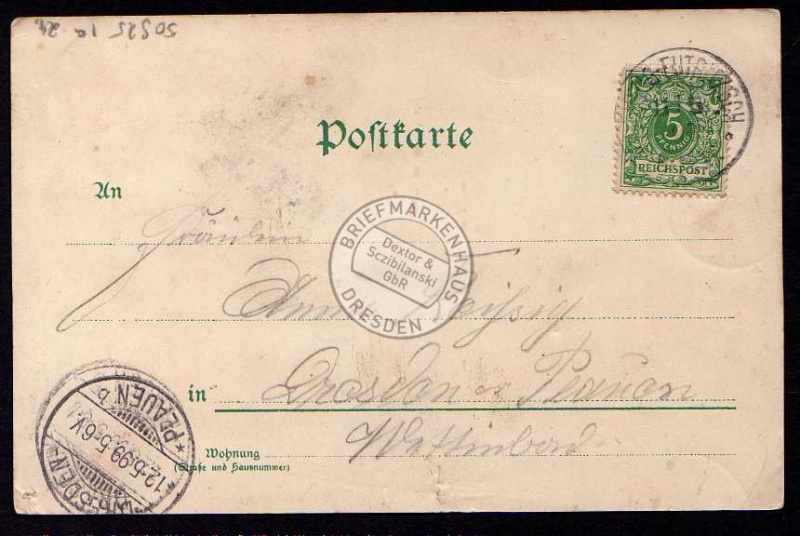 50525 1a 24
Postkarte
5
PFENNIG
REICHSPOST
An
Fräulein
Anna
in
Dresden Plauen
Wohnung
(Straße und Hausnummer)
BRIEFMARKENHAUS
Dextor &
Sczibilanski
GbR
DRESDEN
DRESDEN-
*12.5.99.5-6V.
*PLAUEN b